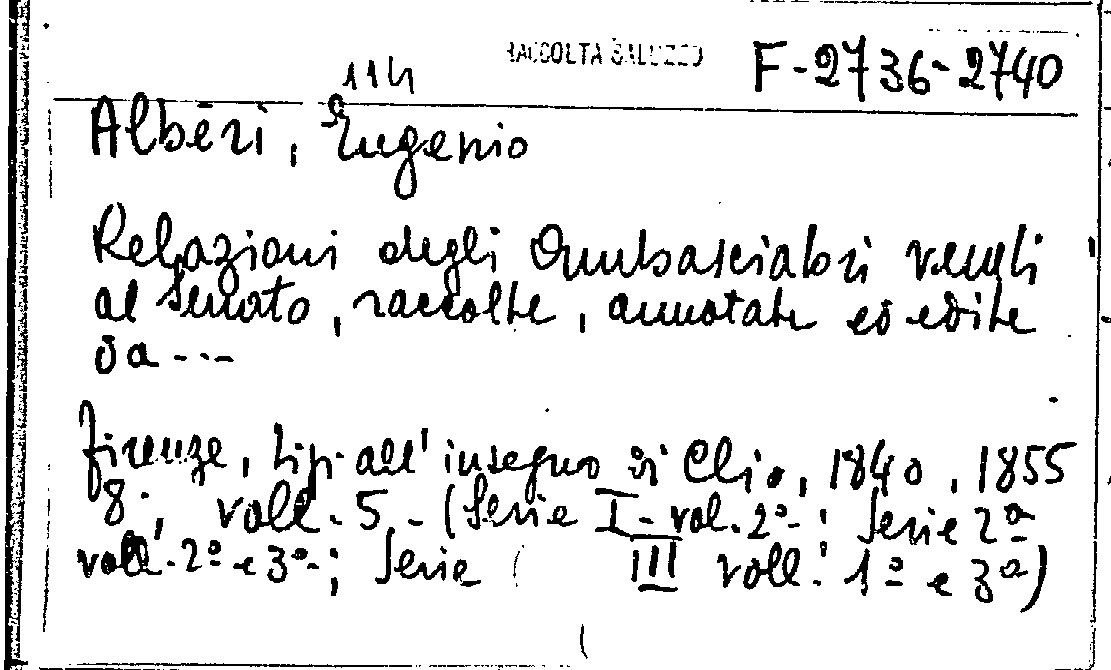 RACCOLTA SALUZZO F-2736-2740
114
Albèri, Eugenio
Relazioni degli Ambasciatori veneti
al Senato, raccolte, annotate ed edite
da ---
Firenze, tip. all'insegna di Clio, 1840, 1855
8°, voll. 5. - (Serie I - vol. 2° - ; Serie 2ª
voll. 2° e 3° - ; Serie III voll. 1° e 3ª)